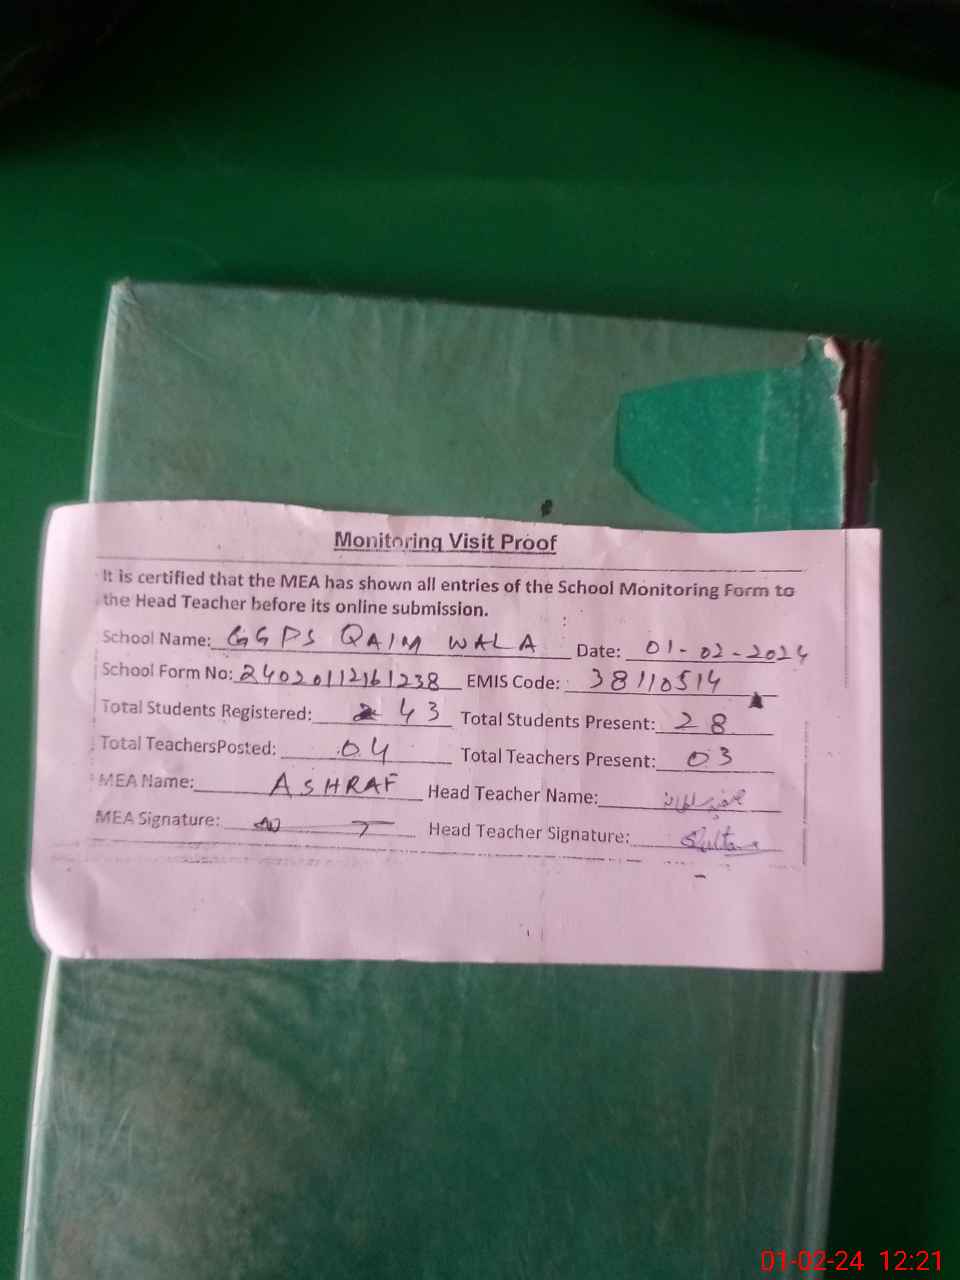 Monitoring Visit Proof
It is certified that the MEA has shown all entries of the School Monitoring Form to
the Head Teacher before its online submission.
School Name: GGPS QAIM WALA Date: 01-02-2024
School Form No: 24020112161238 EMIS Code: 38110514
Total Students Registered: 43 Total Students Present: 28
Total TeachersPosted: 04 Total Teachers Present: 03
MEA Name: ASHRAF Head Teacher Name:
MEA Signature: Head Teacher Signature:
01-02-24 12:21